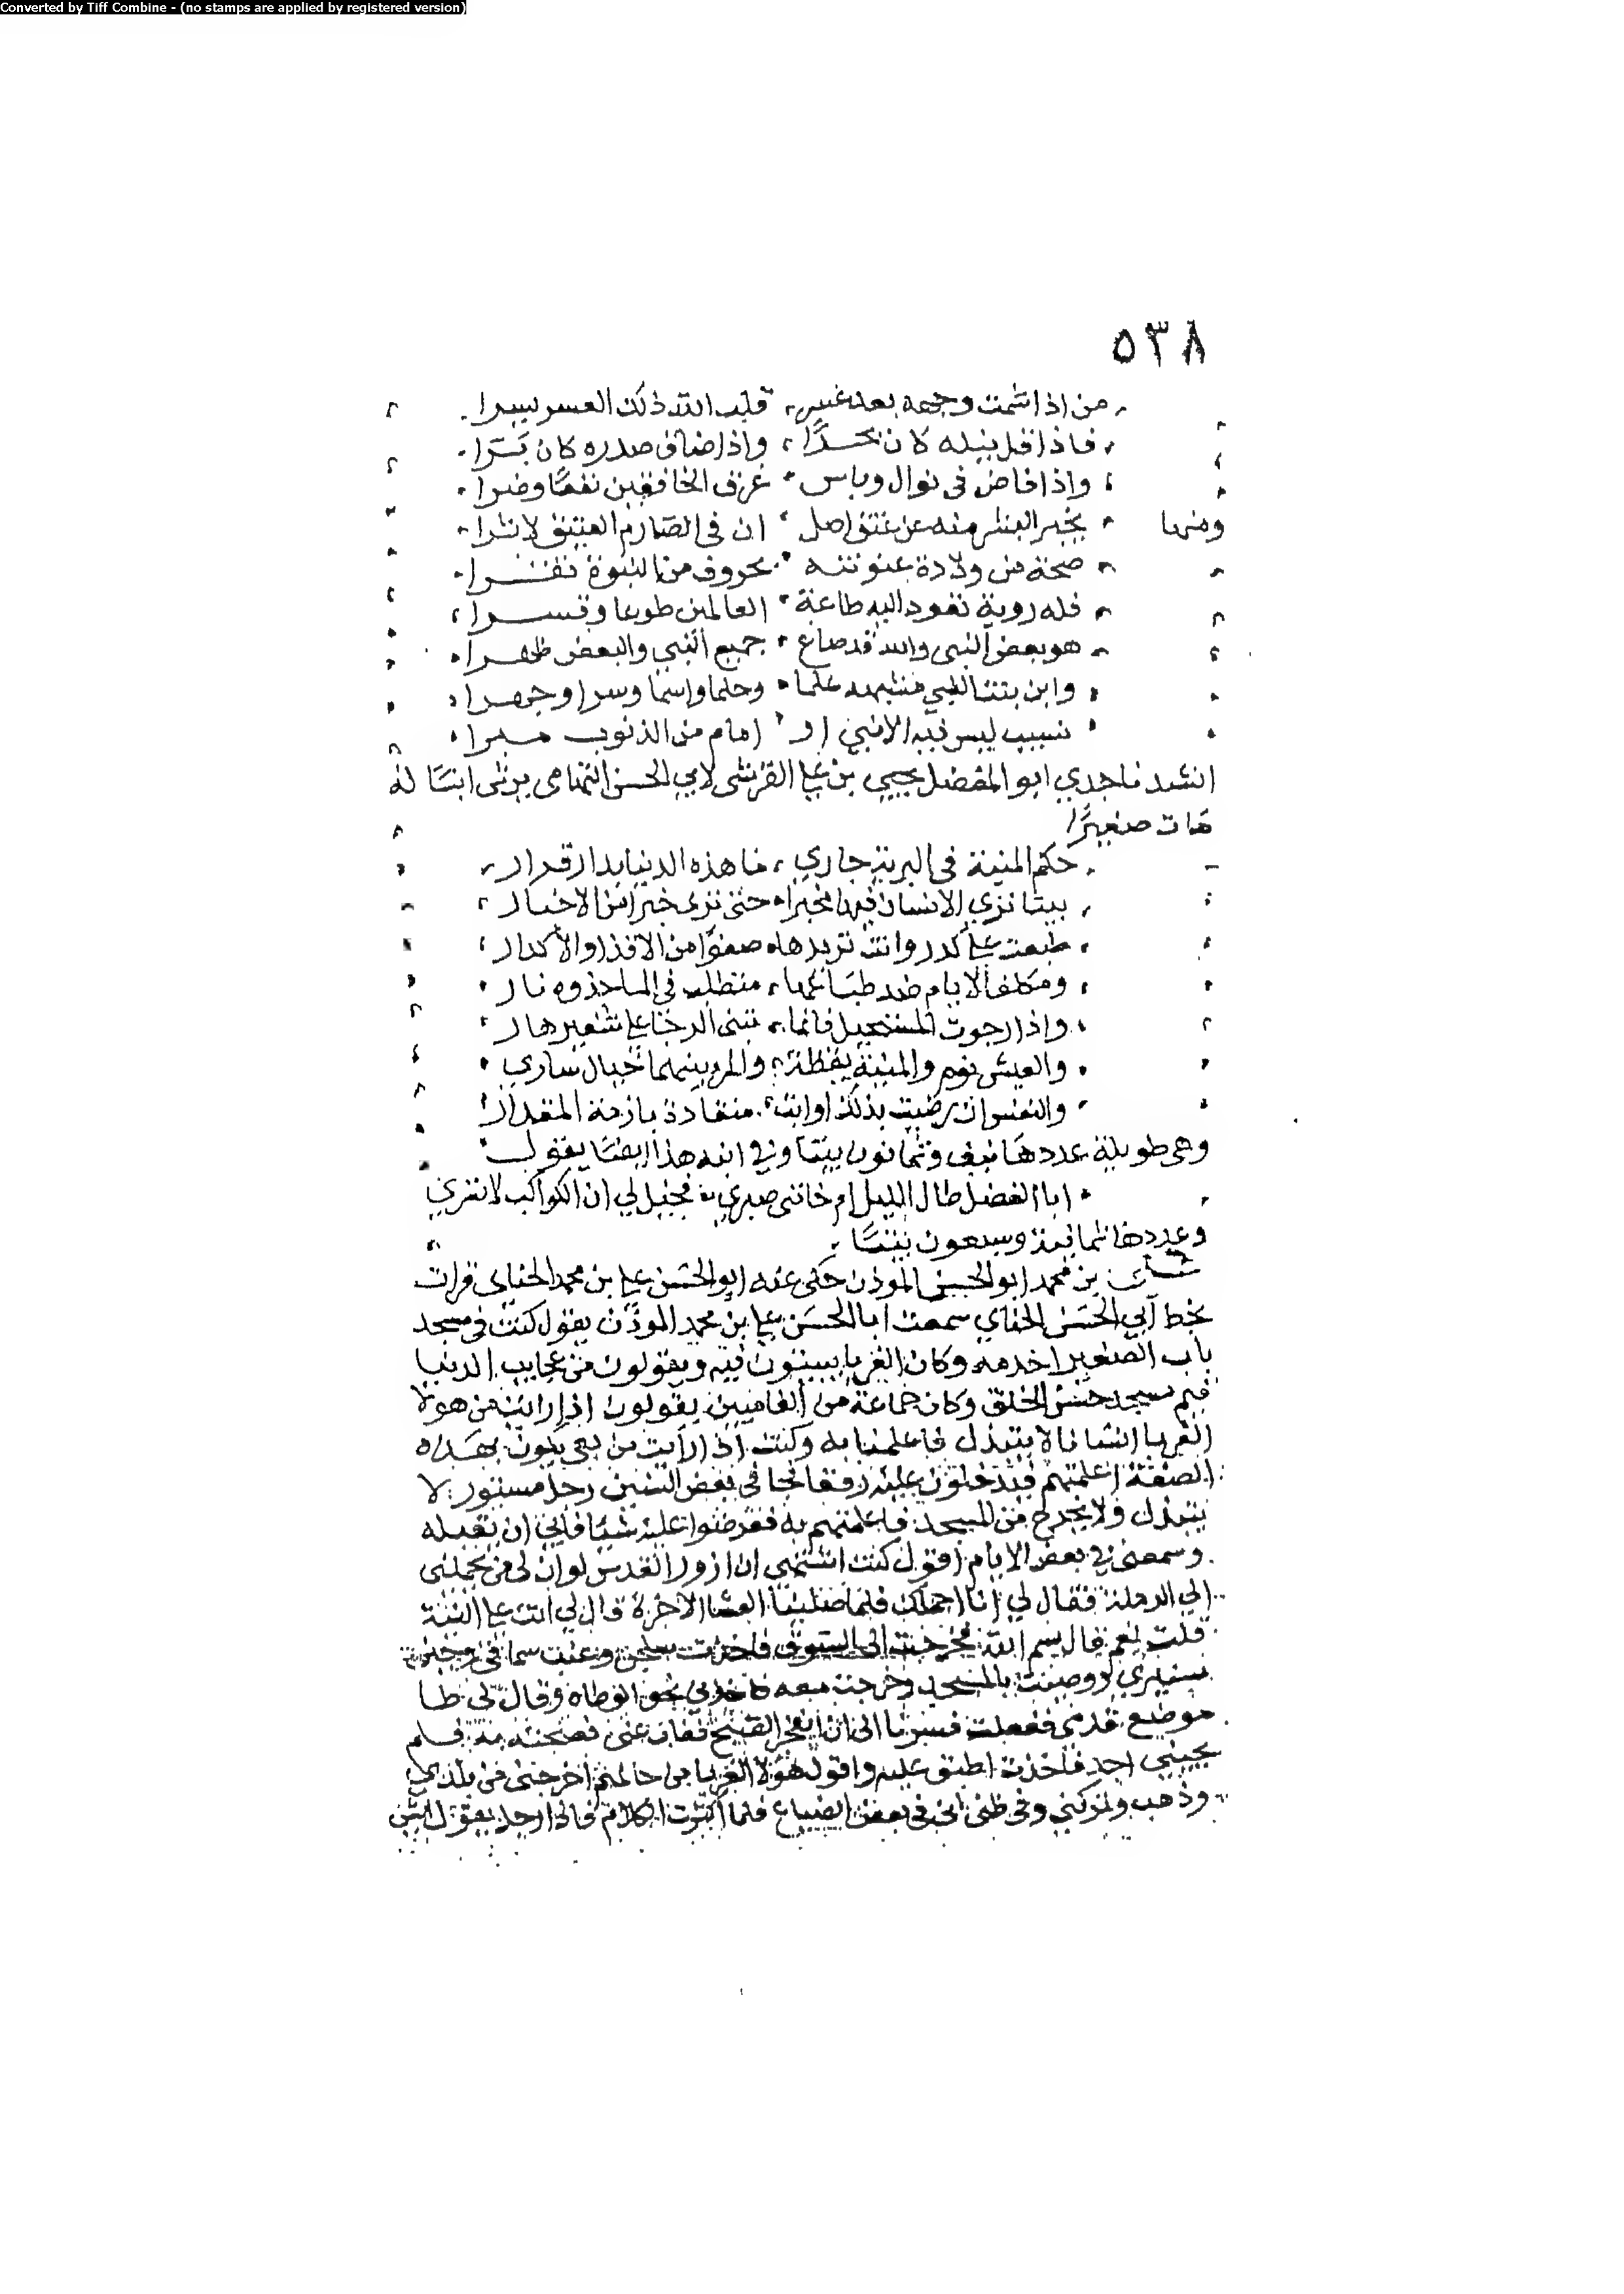 Converted by Tiff Combine - (no stamps are applied by registered version)
٥٣٨
من اذا شمت وجهه بعد عسر قلب الله ذلك العسر يسرا
فاذا قل نيله كان بحرا واذا ضاق صدره كان برا
واذا فاض في نوال وباس غرق الخافقين نفعا وضرا
ومنها يخبر البشر منه عن عتق اصل ان في الصارم العتيق لاثرا
صحة من ولادة عنونته بحروف من النبوة تقرا
فله روية تقود اليه طاعة العالمين طوعا وقسرا
هو بعض النبي والله قد صاغ جميع النبي والبعض طهرا
وابن بنت النبي مشبهه علما وحلما واسما وسرا وجهرا
نسب ليس فيه الا نبي او امام من الذنوب مبرا
انشدنا جدي ابو المفضل يحيى بن علي القرشي لابي الحسن التهامي يرثي ابنا له
مات صغيرا
حكم المنية في البرية جاري ما هذه الدنيا بدار قرار
بينا نرى الانسان فيها مخبرا حتى نرى خبرا من الاخبار
طبعت على كدر وانت تريدها صفوا من الاقذا والاكدار
ومكلف الايام ضد طباعها متطلب في الما جذوة نار
واذا رجوت المستحيل فانما تبنى الرجا على شفير هار
والعيش نوم والمنية يقظة والمر بينهما خيال ساري
والنفس ان رضيت بذلك او ابت منقادة بازمة المقدار
وهي طويلة عددها نيف وثمانون بيتا وفي ابنه هذا ايضا يقول
ابا الفضل طال الليل ام خانني صبري فخيل لي ان الكواكب لا تسري
وعددها ثمانية وسبعون بيتا
بن محمد ابو الحسن الموذن حكى عنه ابو الحسن علي بن محمد الحناي قرات
بخط ابي الحسن الحناي سمعت ابا الحسن علي بن محمد الموذن يقول كنت في مسجد
باب الصغير اخدمه وكان الغربا يبيتون فيه ويقولون من عجايب الدنيا
قيم مسجد حسن الخلق وكان جماعة من الفاميين يقولون اذا رايت من هولا
الغربا انسانا لا يتبذل فاعلمنا به وكنت اذا رايت من يجي يكون بهذه
الصفة اعلمتهم فيدخلون عليه رفقا فجا في بعض السنين رجل مستور لا
يتبذل ولا يخرج من المسجد فاعلمتهم به فعرضوا عليه شيا فابى ان يقبله
وسمعني في بعض الايام اقول كنت اشتهي ان ازور القدس لو ان لي من يحملني
الى الرملة فقال لي انا احملك فلما صلينا العشا الاخرة قال لي انت على النية
قلت نعم قال بسم الله فخرجت الى السوق فاخذت
ووصيت بالمسجد وخرجت معه فاخذني نحو وقال لي طا
موضع قدمي ففعلت فسرنا الى ان انفجر فغاب عني فصحت به فلم
يجيبني احد فاخذت اطبق عليه واقول هولا الغربا من حالهم اخرجني من بلدي
وذهب وتركني وفي ظني اني في بعض الضياع فلما اكثرت الكلام فاذا رجل يقول ايش